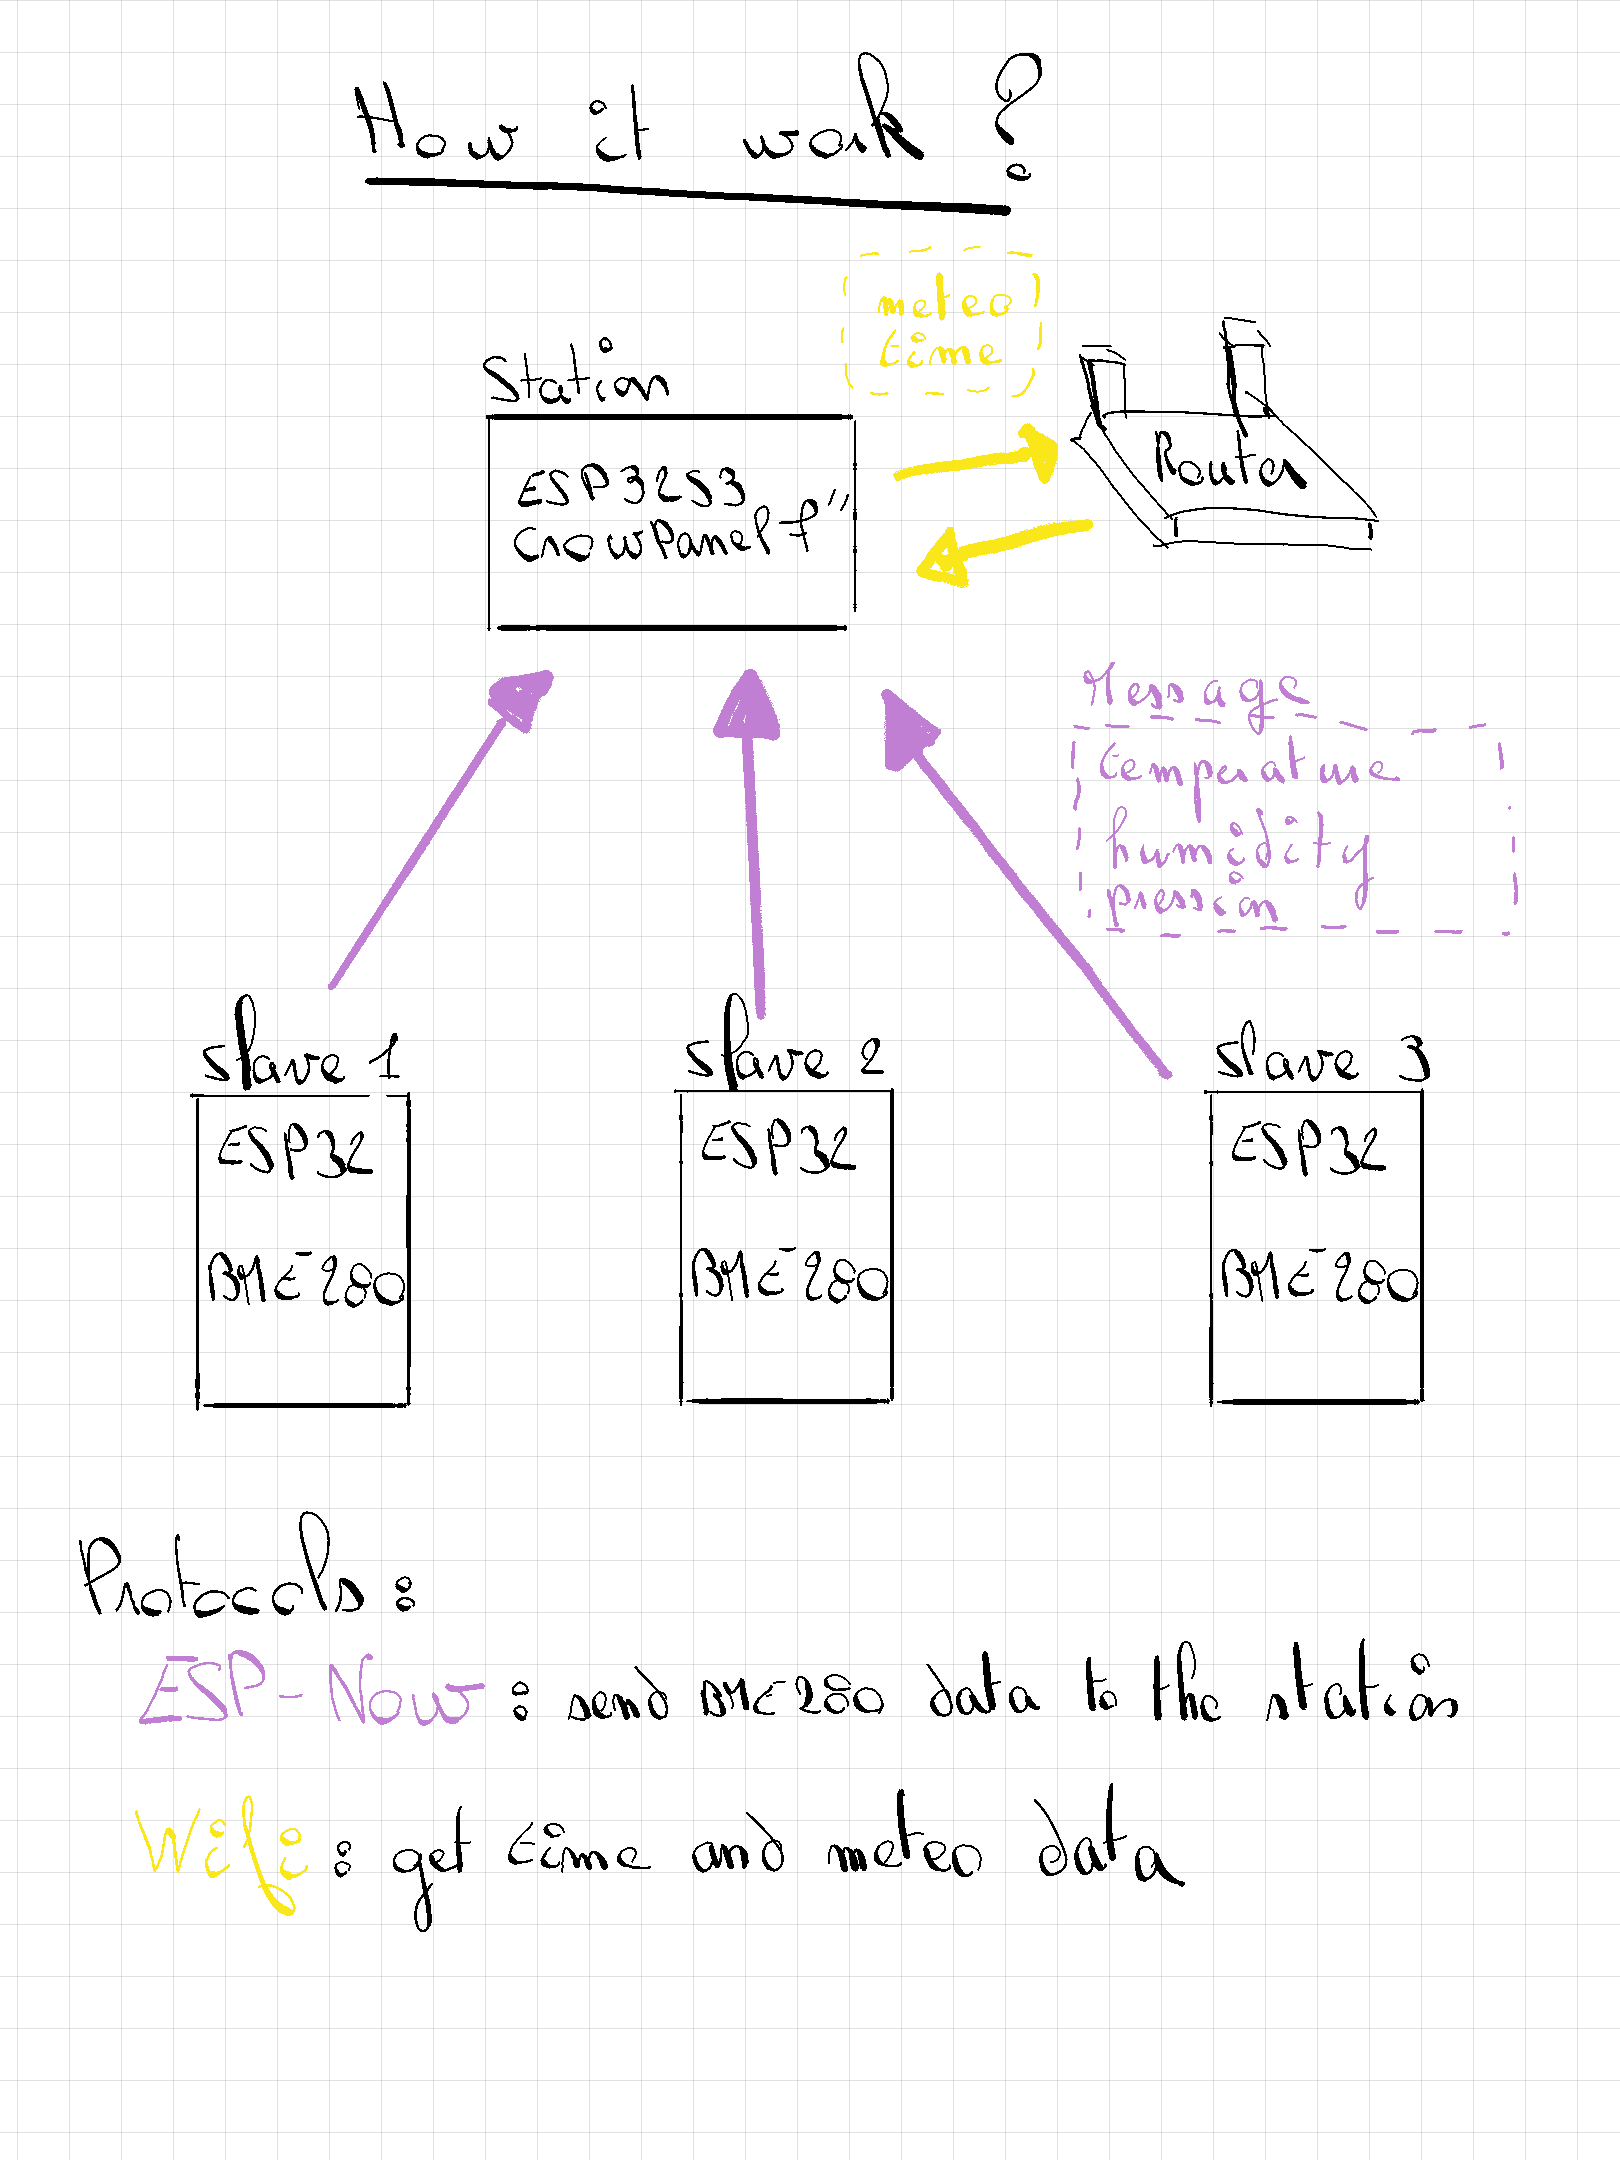 How it work ?
meteo
time
Station
ESP32S3
CrowPanel 7"
Router
Message
temperature
humidity
pression
slave 1
ESP32
BME280
slave 2
ESP32
BME280
slave 3
ESP32
BME280
Protocols :
ESP-Now : send BME280 data to the station
Wifi : get time and meteo data